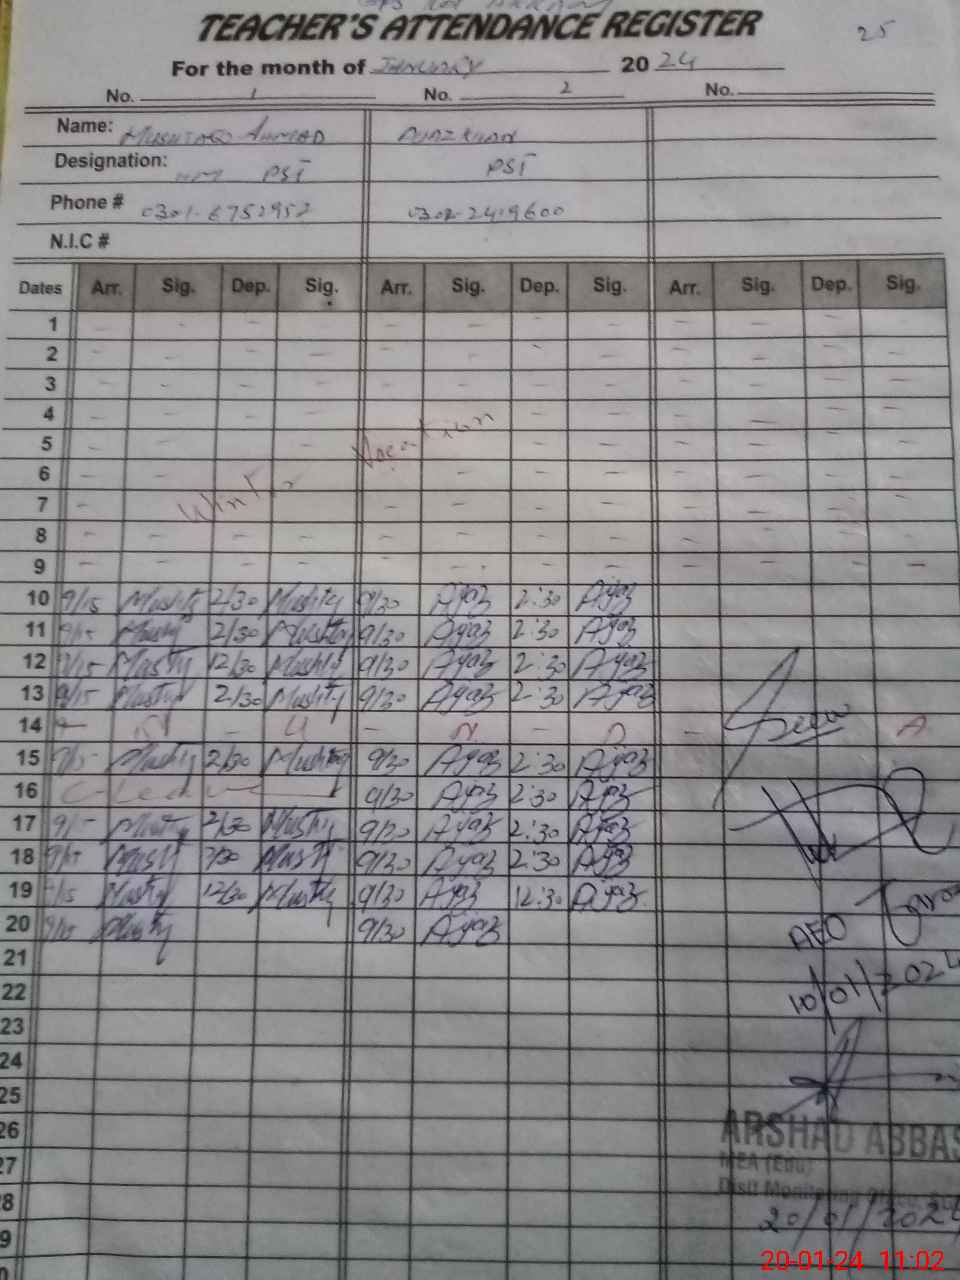 TEACHER'S ATTENDANCE REGISTER 25
For the month of January 2024
No. 1 No. 2 No.
Name: MUSHTAQ AHMAD AYAZ KHAN
Designation: HM PST PST
Phone # 0301-6752952
N.I.C #
Dates Arr. Sig. Dep. Sig. Arr. Sig. Dep. Sig. Arr. Sig. Dep. Sig.
1 – – – – – – – – – – – –
2 – – – – – – – – – – – –
3 – – – – – – – – – – – –
4 – – – – – – – – – – – –
5 – – – – – – – – – – – –
6 – – – – – – – – – – – –
7 – – – – – – – – – – – –
8 – – – – – – – – – – – –
9 – – – – – – – – – – – –
Winter Vacation
10 9/15 Mushtq 2/30 Mushtq 9/30 Ayaz 2:30 Ayaz
11 9/15 Mushtq 2/30 Mushtq 9/30 Ayaz 2:30 Ayaz
12 9/15 Mushtq 12/30 Mushtq 9/30 Ayaz 2:30 Ayaz
13 9/15 Mushtq 2/30 Mushtq 9/30 Ayaz 2:30 Ayaz
14 – S – U – N – D – A
15 9/15 Mushtq 2/30 Mushtq 9/30 Ayaz 2:30 Ayaz
16 C-Leave 9/30 Ayaz 2:30 Ayaz
17 9/15 Mushtq 2/30 Mushtq 9/30 Ayaz 2:30 Ayaz
18 9/15 Mushtq 2/30 Mushtq 9/30 Ayaz 2:30 Ayaz
19 9/15 Mushtq 12/30 Mushtq 9/30 Ayaz 12:30 Ayaz
20 9/15 Mushtq 9/30 Ayaz
AEO
21
22
10/01/2024
23
24
25
26
ARSHAD ABBAS
27
MEA (Edu)
28
Distt Monitoring Office
29
20/01/2024
20-01-24 11:02